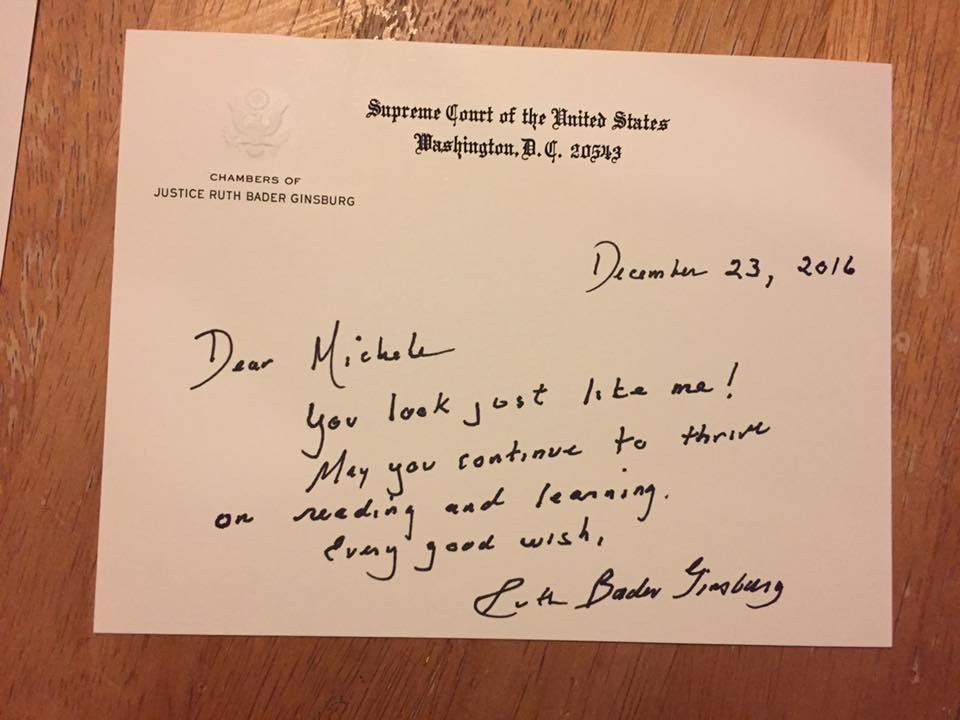 Supreme Court of the United States
Washington, D. C. 20543
CHAMBERS OF
JUSTICE RUTH BADER GINSBURG
December 23, 2016
Dear Michele
You look just like me!
May you continue to thrive
on reading and learning.
Every good wish,
Ruth Bader Ginsburg